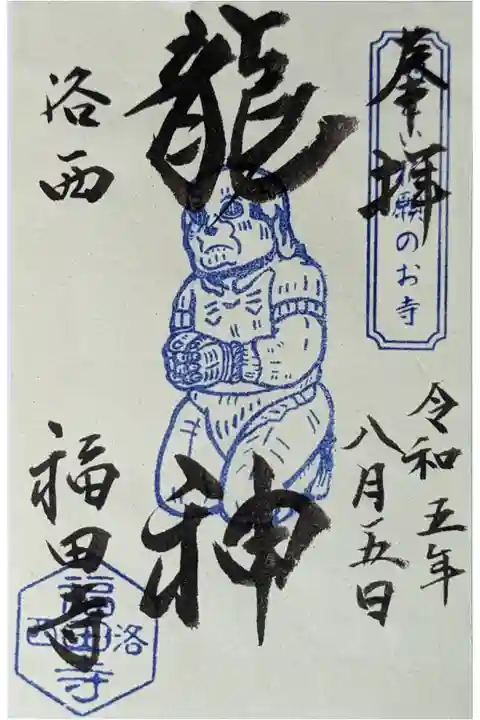 奉拝
願のお寺
令和五年
八月五日
龍神
洛西
福田寺
洛西
福田寺